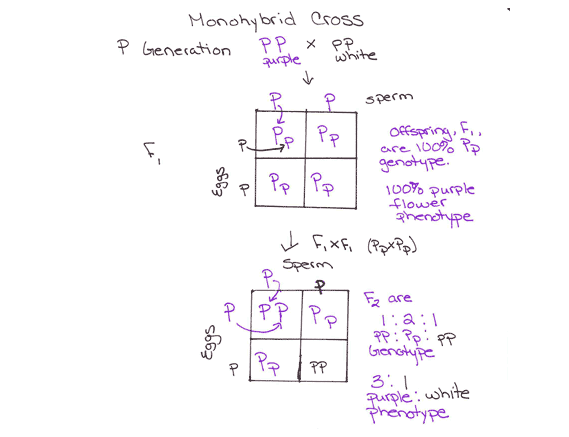 Monohybrid Cross
P Generation PP x pp
purple white
P P sperm
P Pp Pp
F₁
Eggs
p Pp Pp
Offspring, F₁,
are 100% Pp
genotype.
100% purple
flower
phenotype
F₁xF₁ (PpxPp)
Sperm
P p
P PP Pp
Eggs
p Pp pp
F₂ are
1:2:1
PP:Pp:pp
Genotype
3:1
purple:white
phenotype